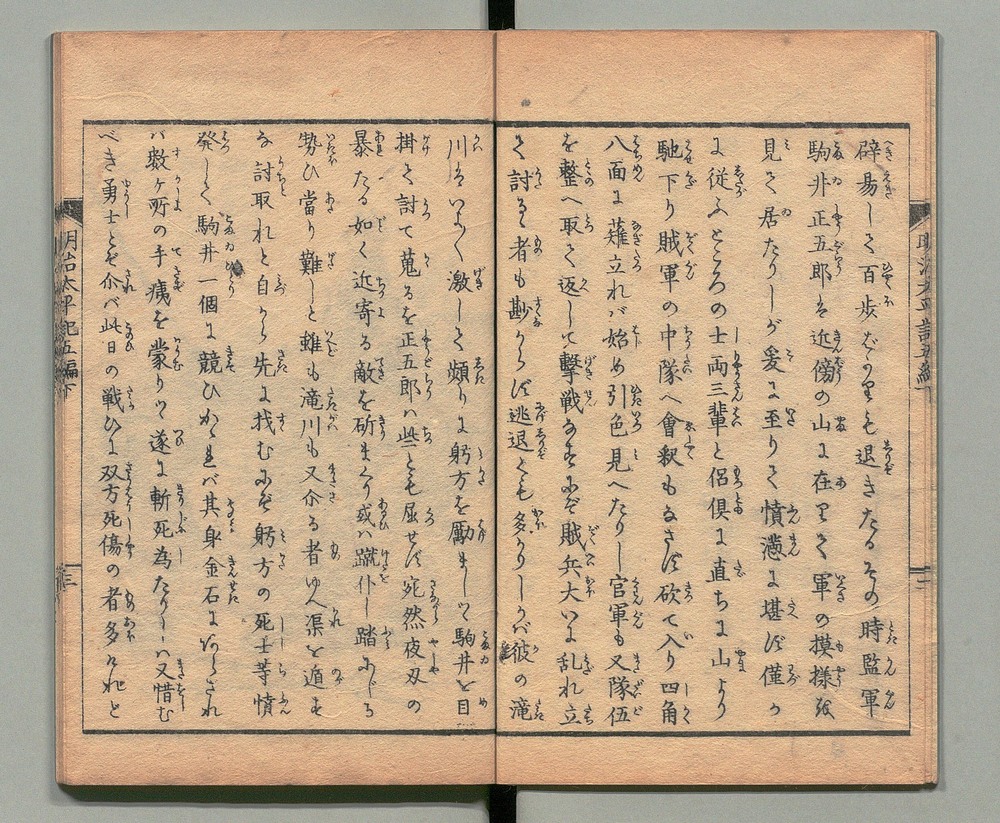 辟易して百歩ばかりも退きたるその時監軍
駒井正五郎は近傍の山に在りて軍の摸様を
見て居たりしが爰に至りて憤懣に堪ず僅か
に従ふところの士両三輩と侶倶に直ちに山より
馳下り賊軍の中隊へ會釈もなさず砍て入り四角
八面に薙立れバ始め引色見へたりし官軍も又隊伍
を整へ取て返して撃戦なすにぞ賊兵大いに乱れ立
て討るゝ者も尠からず逃退くも多かりしかバ彼の滝
川はいよ〱激して頻りに躬方を勵ましつゝ駒井を目
掛て討て蒐るを正五郎ハ些とも屈せず宛然夜叉の
暴たる如く近寄る敵を斫まくり或ハ蹴仆し踏にじる
勢ひ當り難しと雖も滝川も又介る者ゆへ渠を遁す
な討取れと自から先に找むにぞ躬方の死士等憤
発して駒井一個に競ひかゝれバ其身金石にあらざれ
バ数ヶ所の手痍を蒙りつゝ遂に斬死為たりしハ又惜む
べき勇士とぞ介バ此日の戦ひに双方死傷の者多けれど
明治太平記五編下
三